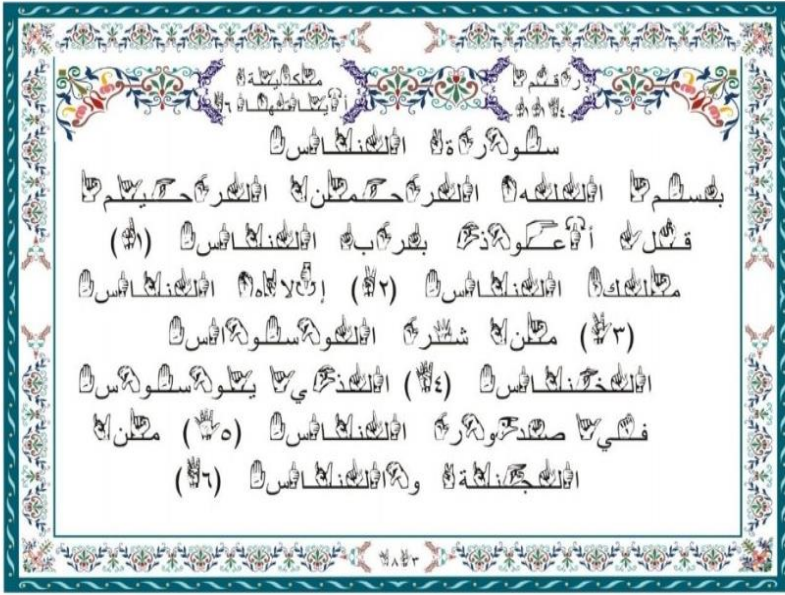 مكية
آياتها ٦
سورة الناس
بسم الله الرحمن الرحيم
قل أعوذ برب الناس (١)
ملك الناس (٢) إلاه الناس
(٣) من شر الوسواس
الخناس (٤) الذي يوسوس
في صدور الناس (٥) من
الجنة والناس (٦)